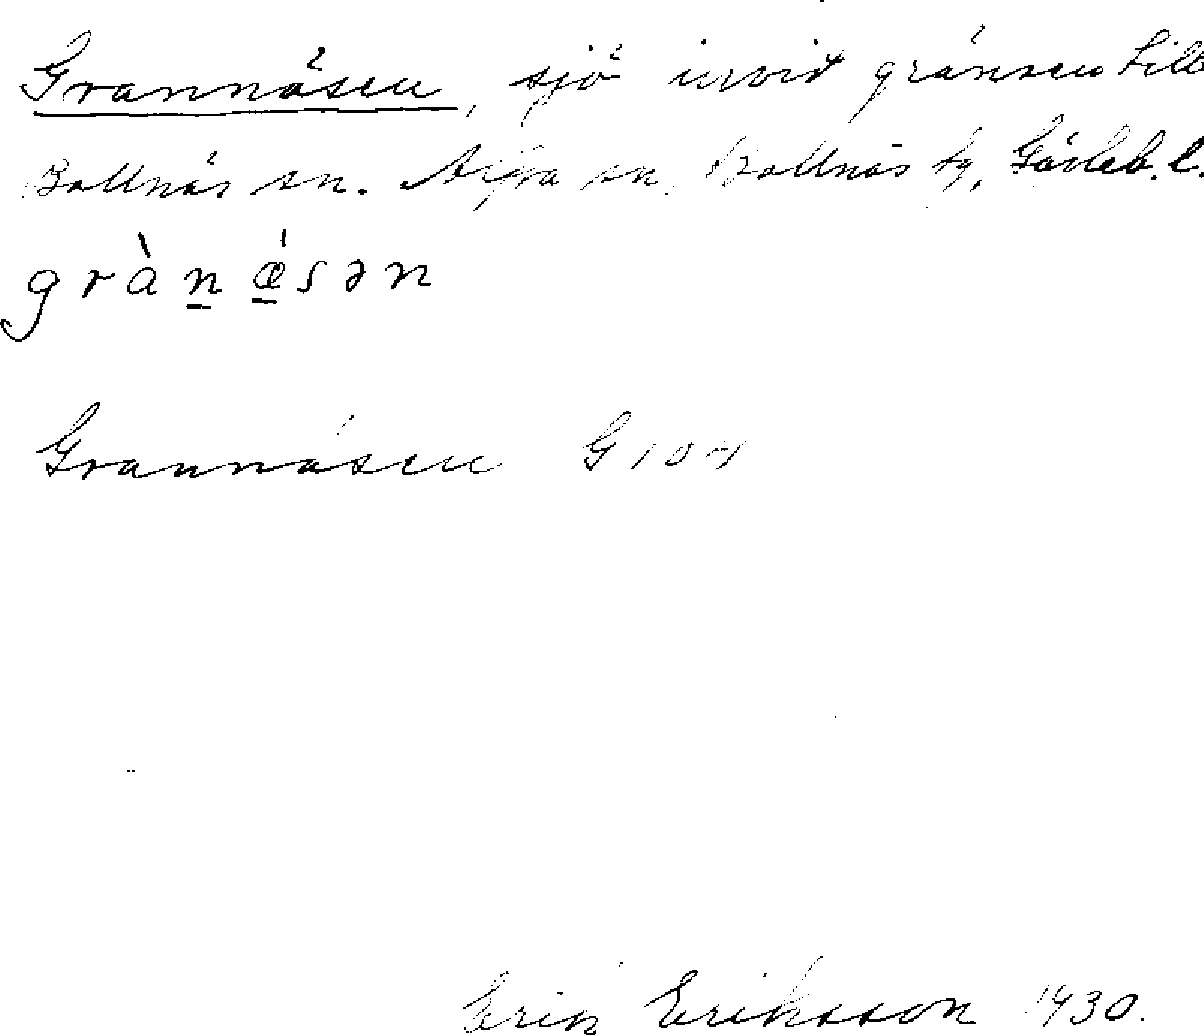 Grannäsen, sjö invid gränsen till
Bollnäs sn. Arbrå sn, Bollnäs tg, Gävleb. l.
grànǽ̱sən
Grannäsen G 104
Erik Eriksson 1930.